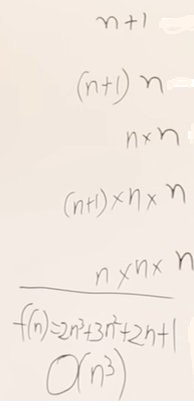 n+1
(n+1) n
n×n
(n+1)×n×n
n×n×n
f(n)=2n³+3n²+2n+1
O(n³)